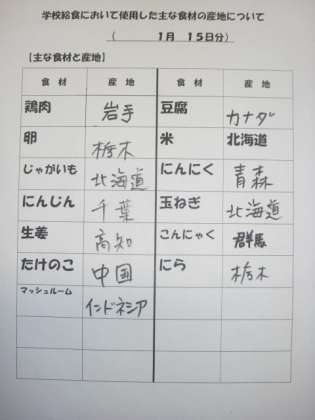 学校給食において使用した主な食材の産地について
( 1月 15日分)
【主な食材と産地】
食 材 産 地 食 材 産 地
鶏肉 岩手 豆腐 カナダ
卵 栃木 米 北海道
じゃがいも 北海道 にんにく 青森
にんじん 千葉 玉ねぎ 北海道
生姜 高知 こんにゃく 群馬
たけのこ 中国 にら 栃木
マッシュルーム インドネシア